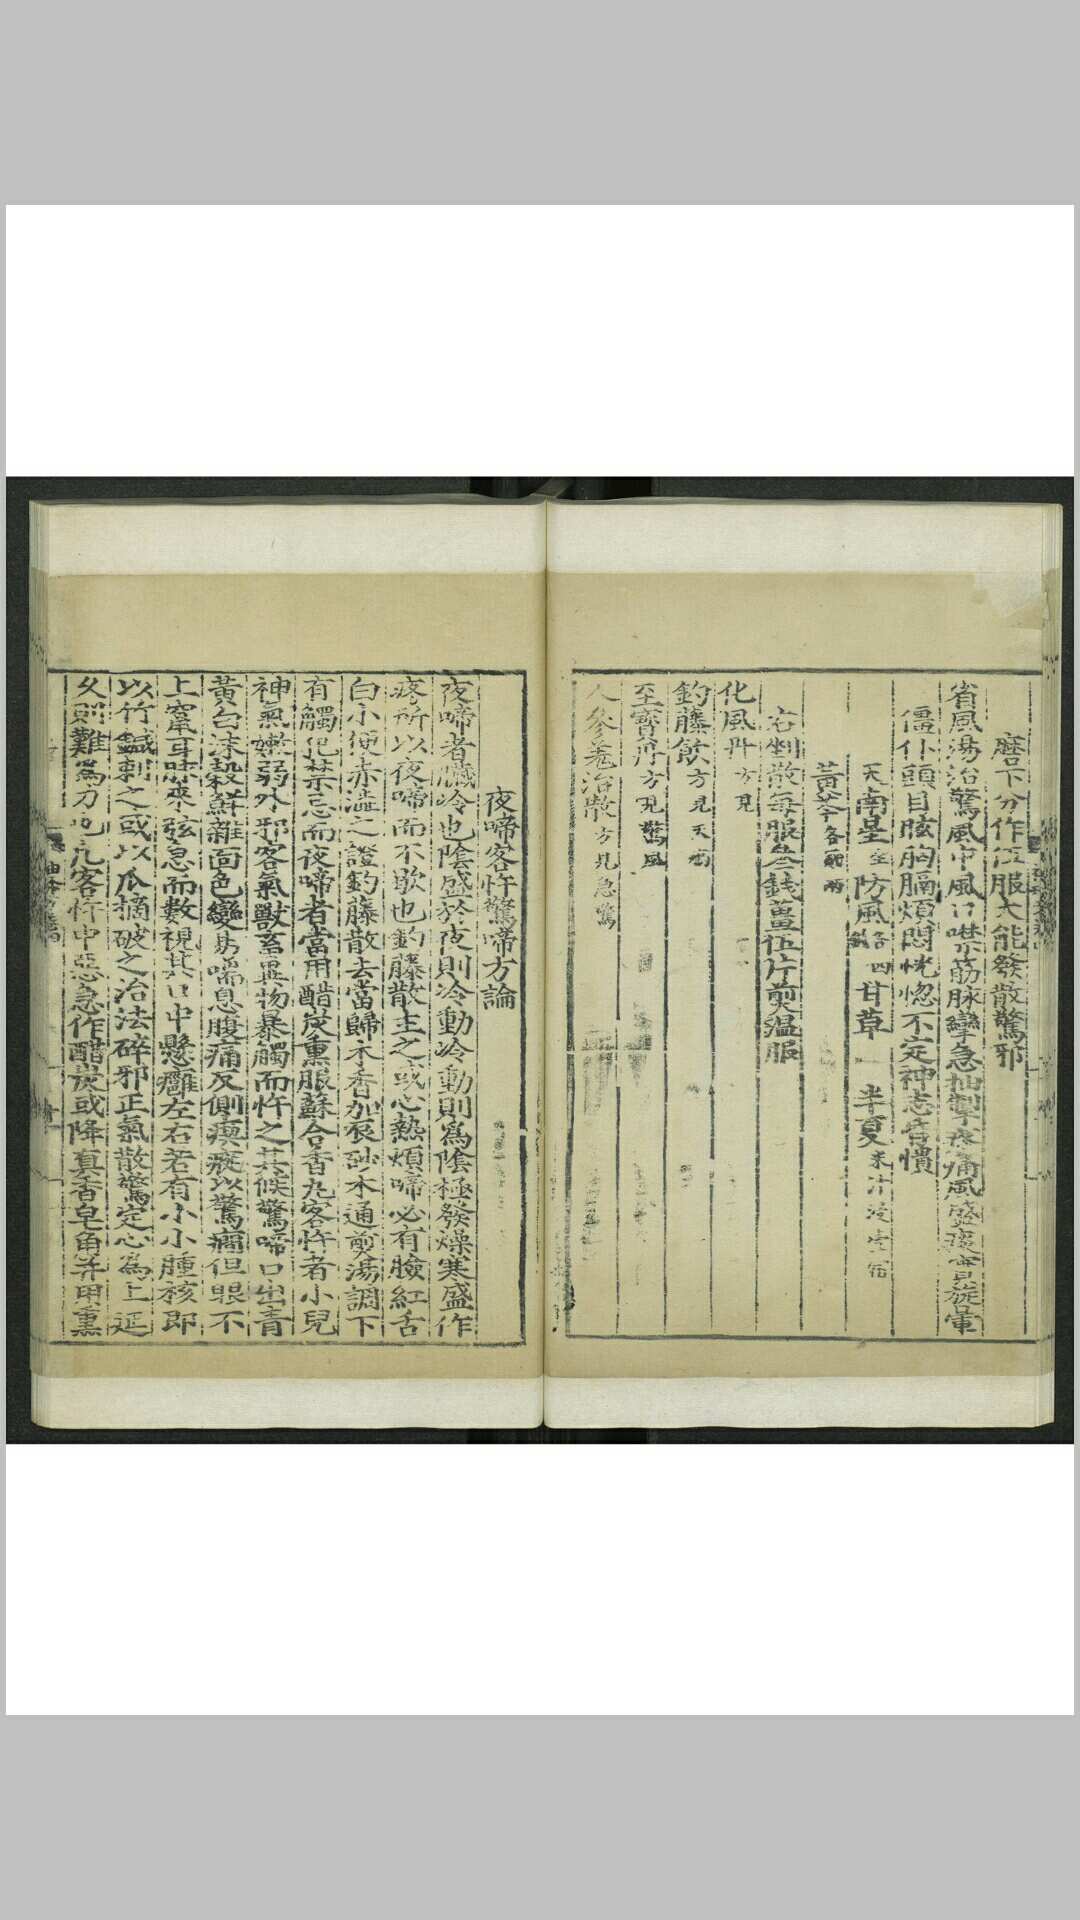 磨下分作㳇服大能發散驚邪
省風湯治驚風中風口噤筋脉攣急抽掣疼痛風盛痰實旋暈
僵仆頭目眩胸膈煩悶恍惚不定神志昏憒
天南星 防風各四 甘草 半夏米汁浸
黄芩各
右剉散每服叁錢薑伍片煎温服
化風丹方見
釣藤飲方見天
至寳丹方見驚風
人參羗治散方見急驚
夜啼客忤驚啼方論
夜啼者臟冷也陰盛於夜則冷動冷動則爲陰極發燥寒盛作
疼所以夜啼而不歇也釣藤散主之或心熱煩啼必有臉紅舌
白小便赤澁之證釣藤散去當歸木香加辰砂木通煎湯調下
有觸犯禁忌而夜啼者當用醋炭熏服蘇合香丸客忤者小兒
神氣嫩弱外邪客氣獸畜異物暴觸而忤之其候驚啼口出青
黄白沫榖鮮雜面色變易喘息腹痛反側瘈瘲以驚癎但眼不
上竄耳脉來弦急而數視其口中懸癰左右若有小小腫核即
以竹鍼刺之或以爪摘破之治法碎邪正氣散驚定心爲上延
久則難爲力也凡客忤中惡急作醋炭或降真香皂角并用熏